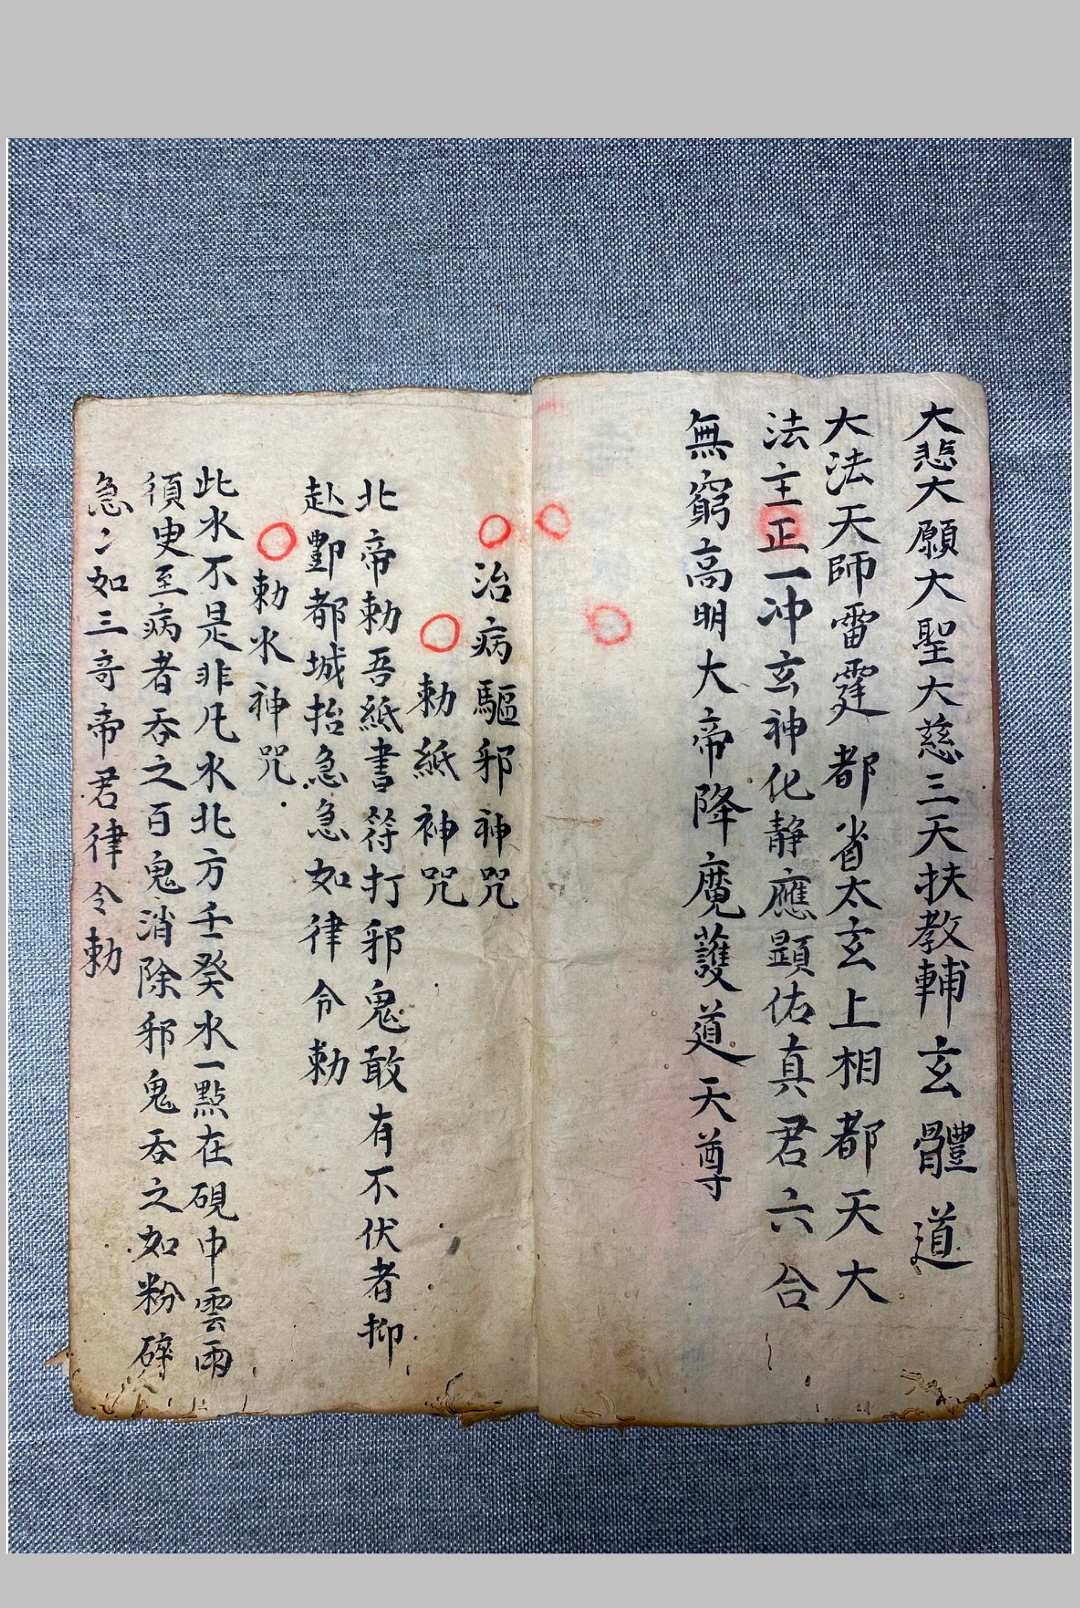 大悲大願大聖大慈三天扶教輔玄體道
大法天師雷霆都省太玄上相都天大
法主正一冲玄神化靜應顯佑真君六合
無窮高明大帝降魔護道天尊
治病驅邪神咒
勅紙神咒
北帝勅吾紙書符打邪鬼敢有不伏者抑
赴酆都城抬急急如律令勅
勅水神咒
此水不是非凡水北方壬癸水一點在硯中雲雨
須臾至病者吞之百鬼消除邪鬼吞之如粉碎
急々如三奇帝君律令勅